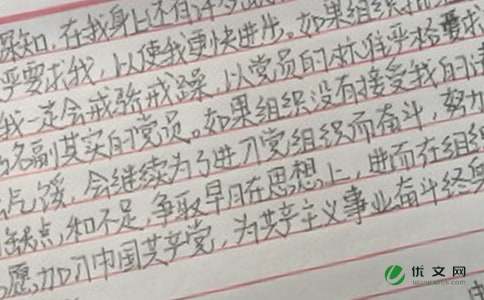 深知,在我身上还有许多
严要求我,以使我更快进步。如果组织
我一定会戒骄戒躁,以党员的标准严格要求
名副其实的党员。如果组织没有接受我的请
气馁,会继续为了进入党组织而奋斗,努力
缺点和不足,争取早日在思想上,进而在组织
愿加入中国共产党,为共产主义事业奋斗终身
优文网